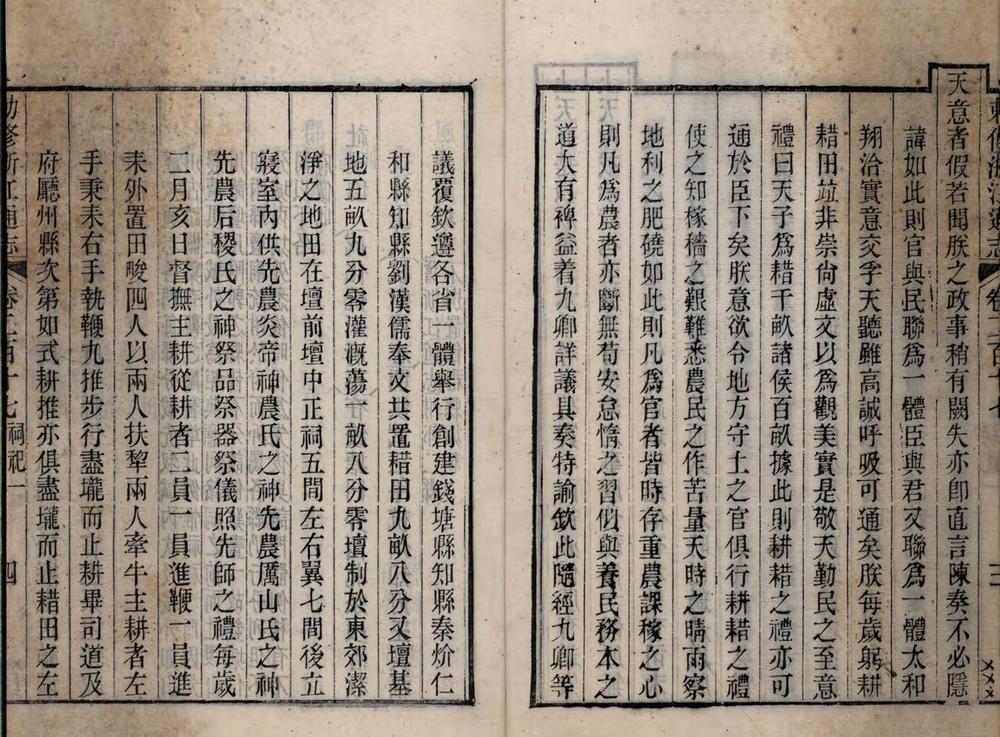 勅修浙江通志 卷二百十七 三
天意者假若聞朕之政事稍有闕失亦卽直言陳奏不必隱
諱如此則官與民聯爲一體臣與君又聯爲一體太和
翔洽實意交孚天聽雖高誠呼吸可通矣朕每歲躬耕
耤田竝非崇尙虛文以爲觀美實是敬天勤民之至意
禮曰天子爲耤千畝諸侯百畝據此則耕耤之禮亦可
通於臣下矣朕意欲令地方守土之官俱行耕耤之禮
使之知稼穡之艱難悉農民之作苦量天時之晴雨察
地利之肥磽如此則凡爲官者皆時存重農課稼之心
則凡爲農者亦斷無苟安怠惰之習似與養民務本之
道大有裨益着九卿詳議具奏特諭欽此隨經九卿等
議覆欽遵各省一體舉行創建錢塘縣知縣秦炌仁
和縣知縣劉漢儒奉文共置耤田九畝八分又壇基
地五畝九分零灌漑蕩一畝八分零壇制於東郊潔
淨之地田在壇前壇中正祠五間左右翼七間後立
寢室內供先農炎帝神農氏之神先農厲山氏之神
先農后稷氏之神祭品祭器祭儀照先師之禮每歲
二月亥日督撫主耕從耕者二員一員進鞭一員進
耒外置田畯四人以兩人扶犂兩人牽牛主耕者左
手秉耒右手執鞭九推步行盡壠而止耕畢司道及
府廳州縣次第如式耕推亦俱盡壠而止耤田之左
勅修浙江通志 卷二百十七 祠祀一 四